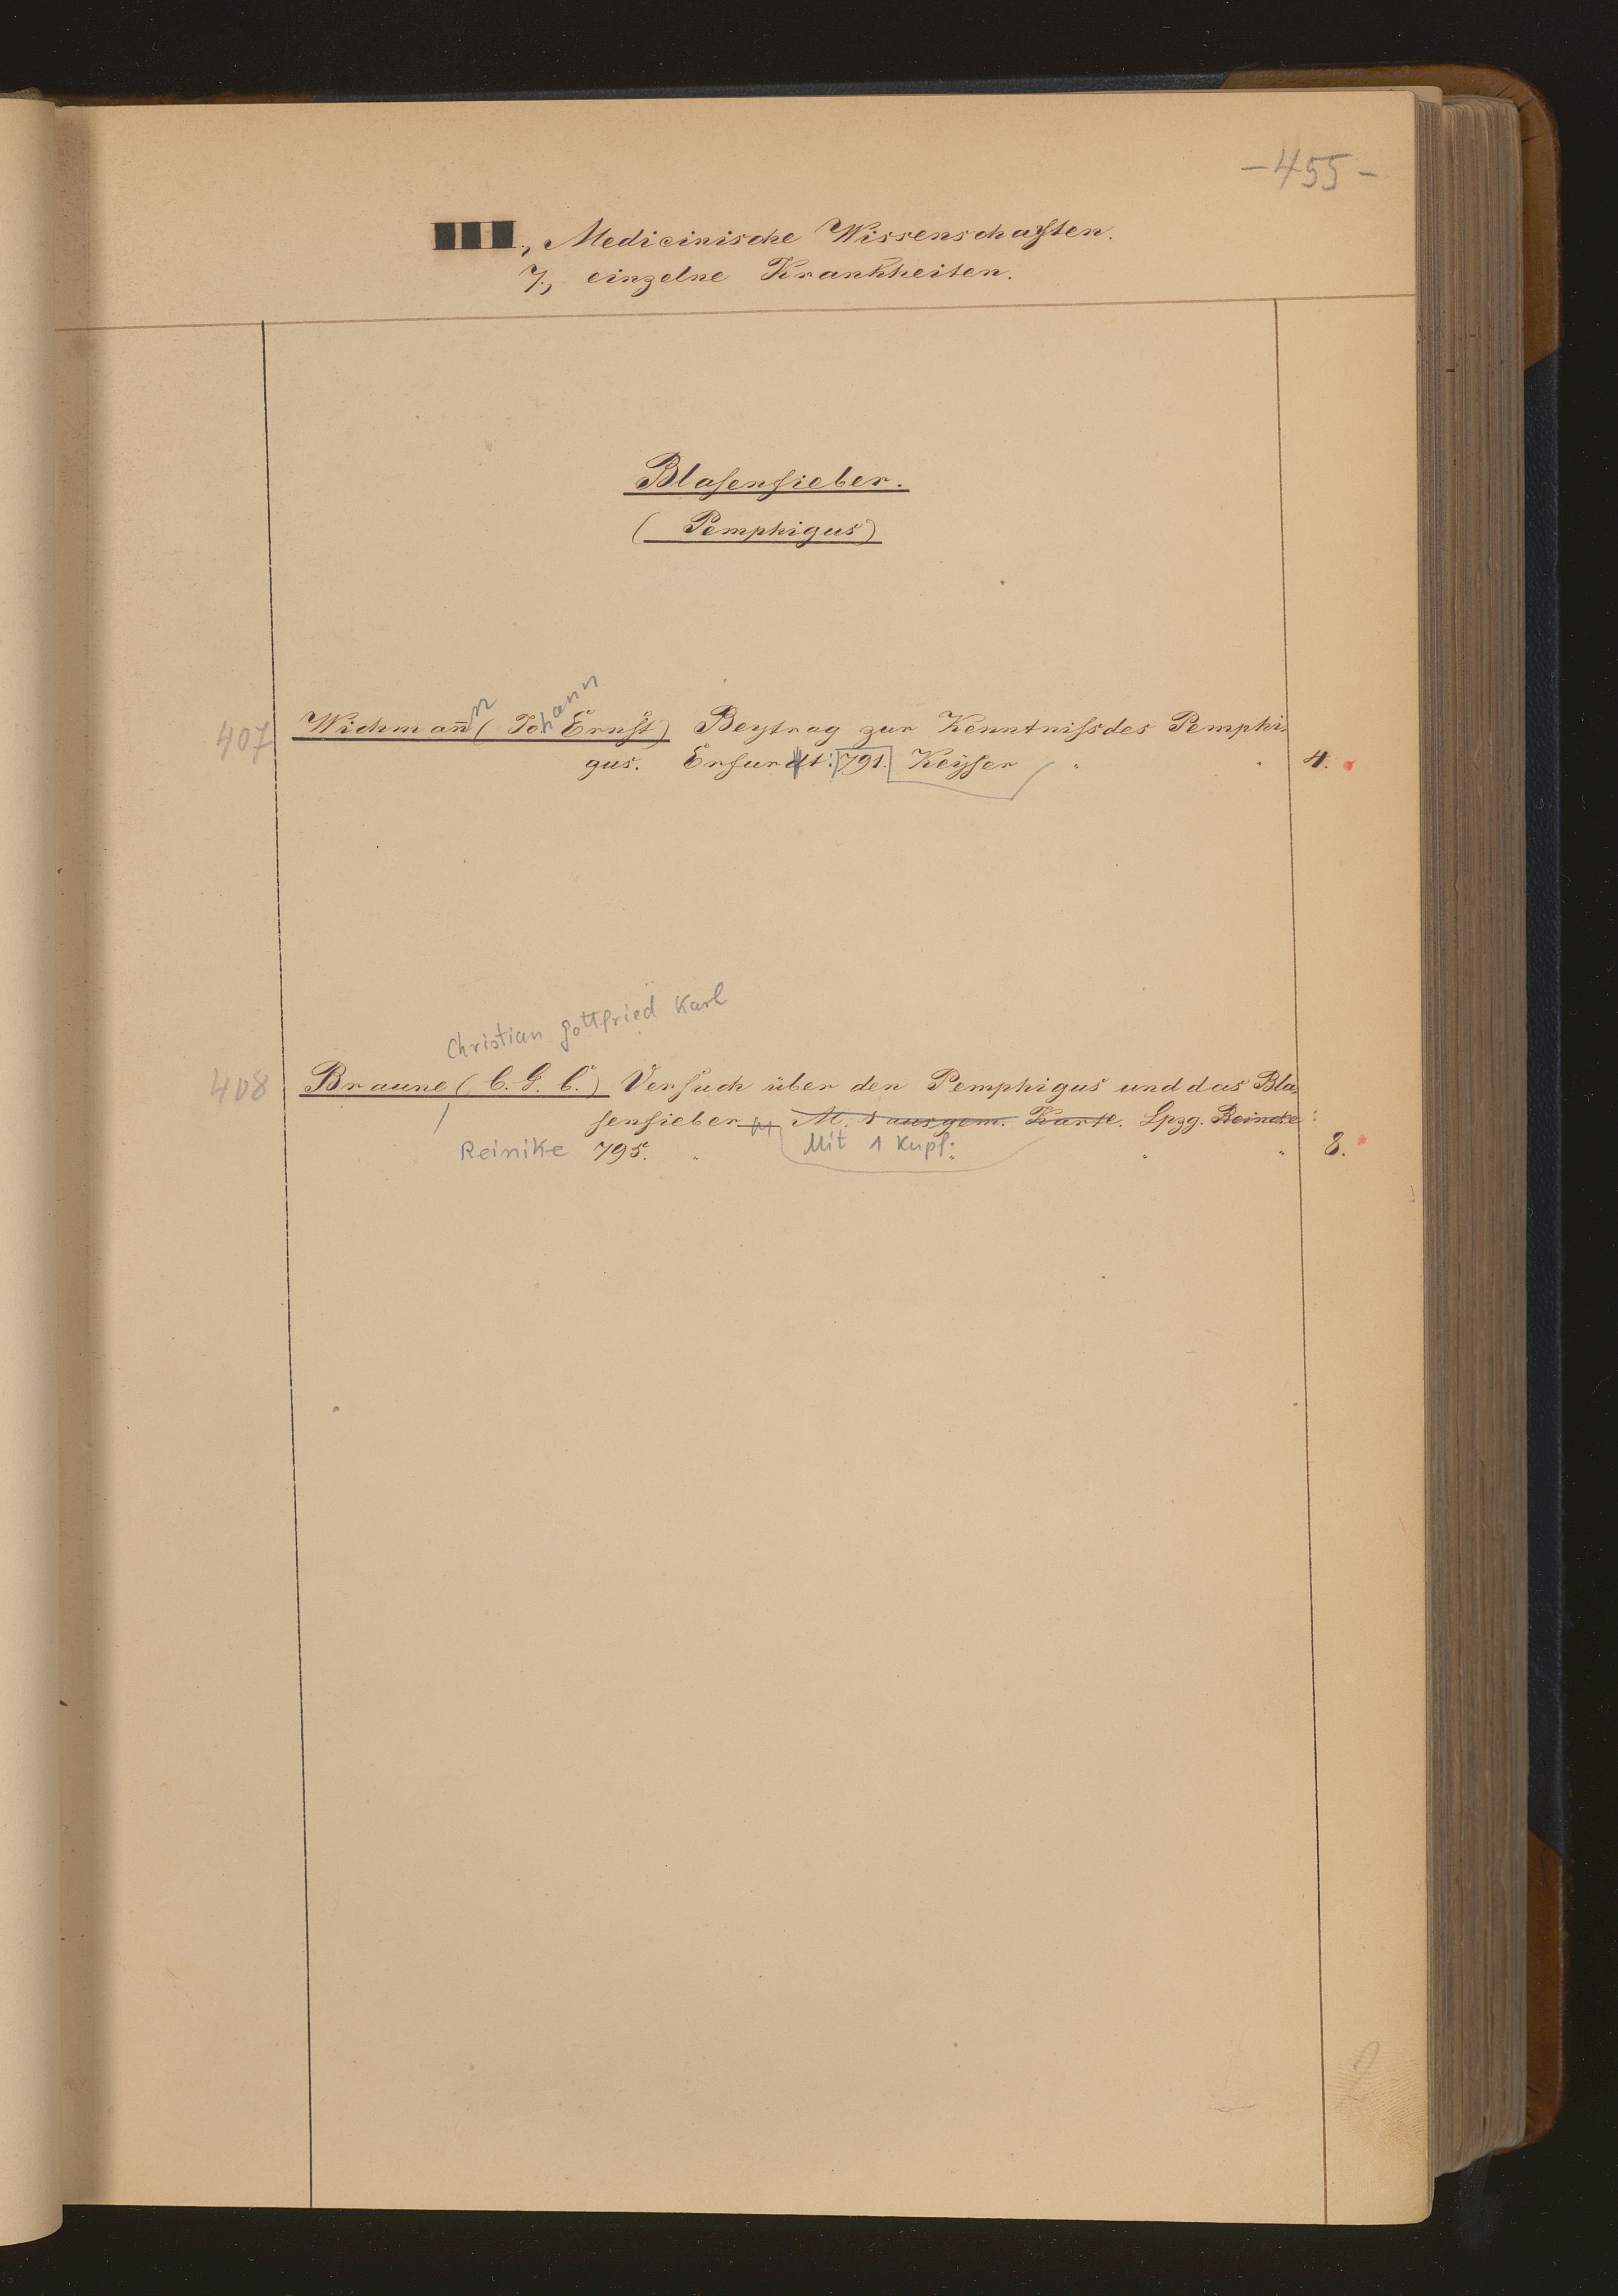 -455-
III., Medicinische Wissenschaften.
7., einzelne Krankheiten.
Blasenfieber.
(Pemphigus)
407 Wichmann̅n (Johann Ernst) Beytrag zur Kenntniss des Pemphi-
gus. Erfurdt: 791. Keyser " " 4.
Christian Gottfried Karl
408 Braune (C. G. C.) Versuch über den Pemphigus und das Bla-
senfieber M. 1 ausgem. Karte. Lpzg. Reincke:
Reinike 795. " Mit 1 Kupf: " " 8.